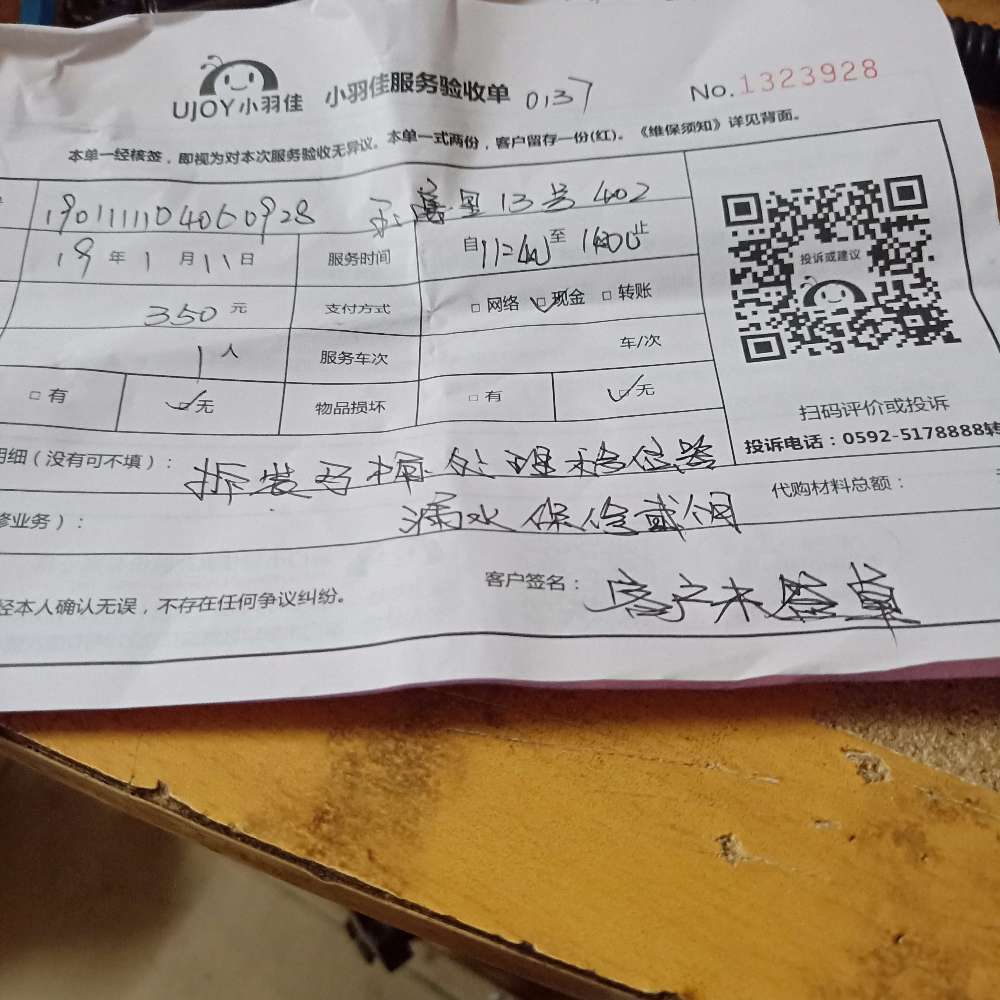 UJOY小羽佳 小羽佳服务验收单 0137 No.1323928
本单一经核签，即视为对本次服务验收无异议。本单一式两份，客户留存一份(红)。《维保须知》详见背面。
里13号402
19年1月11日 服务时间 自 至 止
350元 支付方式 □网络 ☑现金 □转账
投诉或建议
1人 服务车次 车/次
□有 ☑无 物品损坏 □有 ☑无
扫码评价或投诉
投诉电话：0592-5178888转
明细（没有可不填）： 拆装马桶处理
漏水保修
代购材料总额：
修业务）：
客户签名： 客户未签单
经本人确认无误，不存在任何争议纠纷。